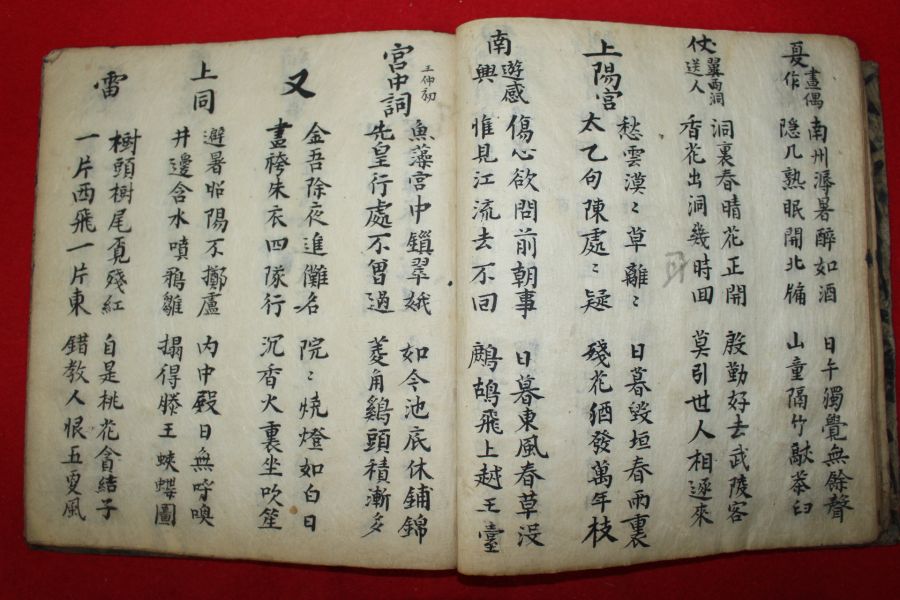 夏晝偶作
南州溽暑醉如酒
隱几熟眠開北牖
日午獨覺無餘聲
山童隔竹敲茶臼
仗翼西洞送人
洞裏春晴花正開
香花出洞幾時囬
殷勤好去武陵客
莫引世人相逐來
上陽宮
愁雲漠〻草離〻
太乙句陳處〻疑
日暮毀垣春雨裏
殘花猶發萬年枝
南遊感興
傷心欲問前朝事
惟見江流去不回
日暮東風春草沒
鷓鴣飛上越王臺
宮中詞 王仲初
魚藻宮中鎖翠娥
先皇行處不曾過
如今池底休鋪錦
菱角鷄頭積漸多
又
金吾除夜進儺名
畫袴朱衣四隊行
院〻燒燈如白日
沉香火裏坐吹笙
上同
避暑昭陽不擲盧
井邊含水噴鴉雛
內中數日無呼喚
搨得滕王蛺蝶圖
雷
樹頭樹尾覔殘紅
一片西飛一片東
自是桃花貪結子
錯教人恨五更風